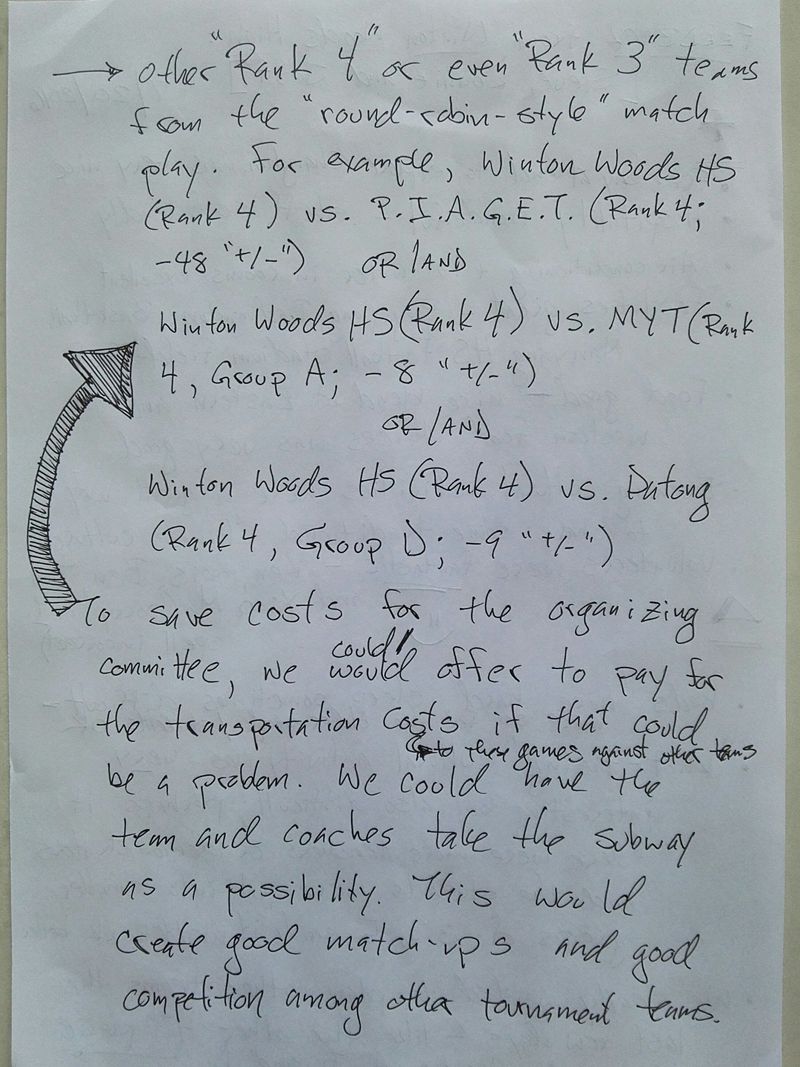 → other "Rank 4" or even "Rank 3" teams
from the "round-robin-style" match
play. For example, Winton Woods HS
(Rank 4) vs. P.I.A.G.E.T. (Rank 4;
-48 "+/-") OR/AND
Winton Woods HS (Rank 4) vs. MYT (Rank
4, Group A; -8 "+/-")
OR/AND
Winton Woods HS (Rank 4) vs. Datong
(Rank 4, Group D; -9 "+/-")
To save costs for the organizing
could/
committee, we would offer to pay for
the transportation costs if that could
to these games against other teams
be a problem. We could have the
team and coaches take the subway
as a possibility. This would
create good match-ups and good
competition among other tournament teams.